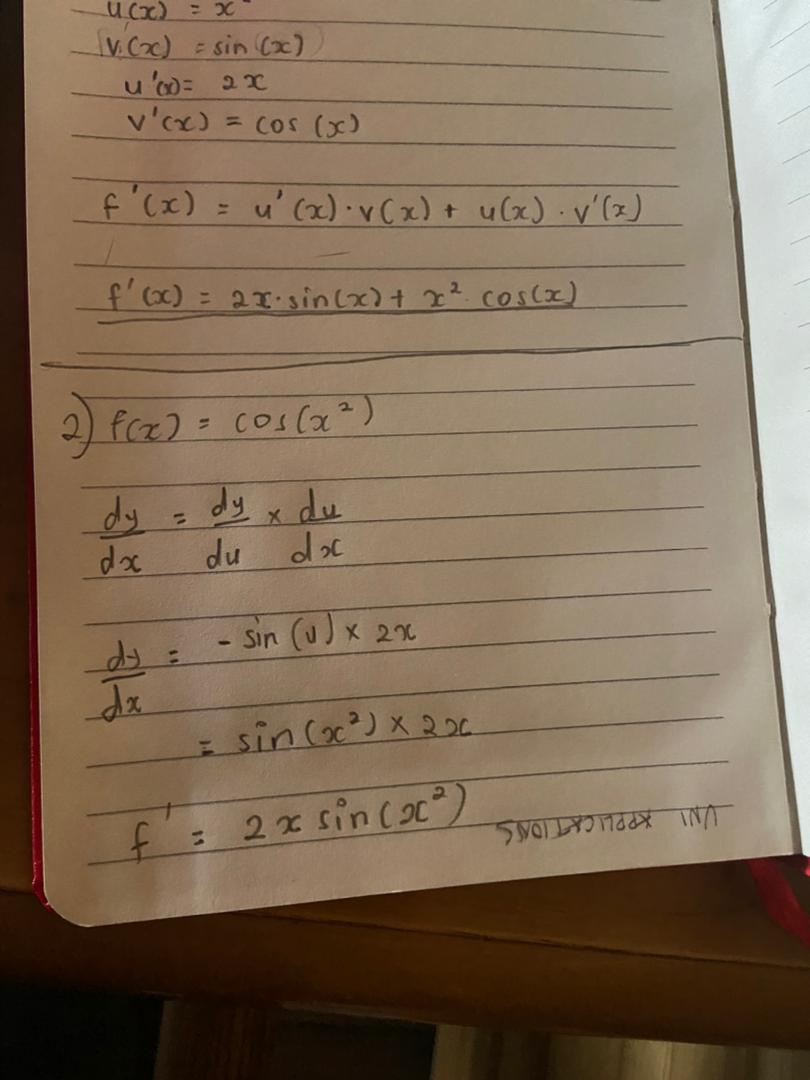 u(x) = x²
v(x) = sin(x)
u'(x) = 2x
v'(x) = cos(x)
f'(x) = u'(x)·v(x) + u(x)·v'(x)
f'(x) = 2x·sin(x) + x²·cos(x)
2) f(x) = cos(x²)
dy/dx = dy/du × du/dx
dy/dx = -sin(u) × 2x
= sin(x²) × 2x
f' = 2x sin(x²)
UNI APPLICATIONS